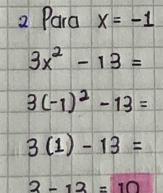 2 Para x = -1
3x² - 13 =
3(-1)² - 13 =
3(1) - 13 =
3 - 13 = 10